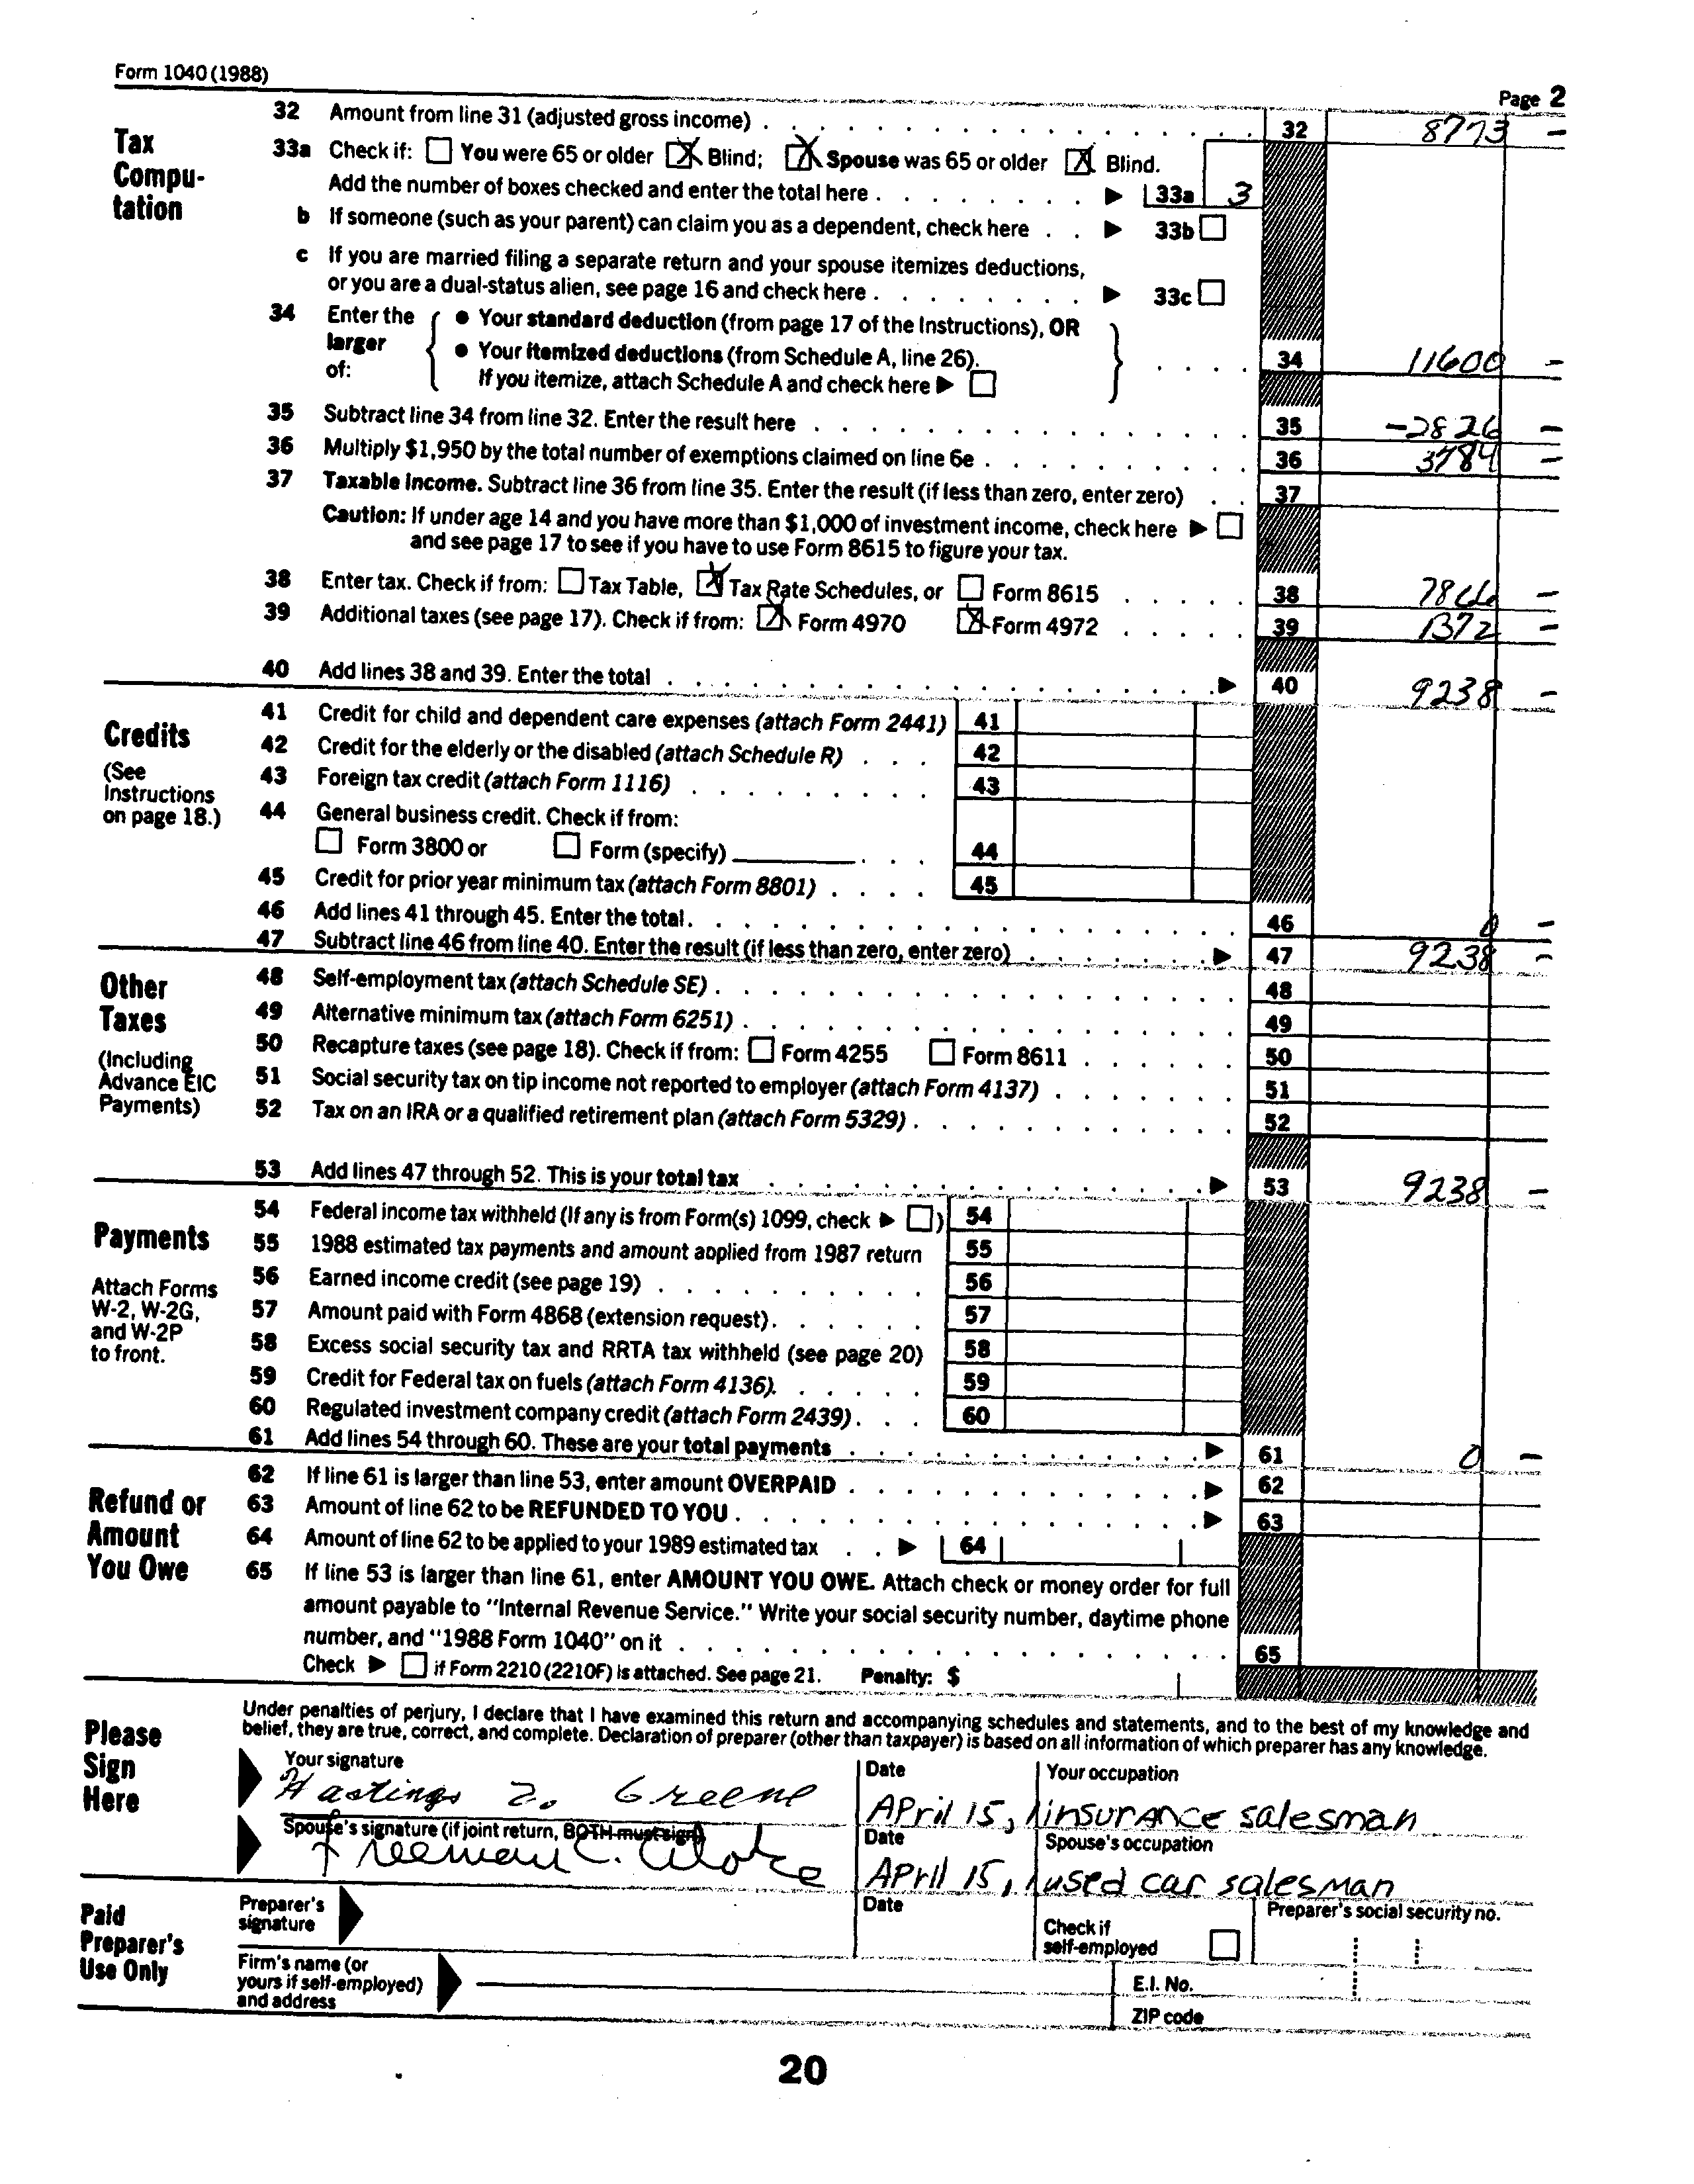 Form 1040 (1988)
Page 2
Tax Compu-tation
32 Amount from line 31 (adjusted gross income) . . . 32 8773 –
33a Check if: ☐ You were 65 or older ☒ Blind; ☒ Spouse was 65 or older ☒ Blind.
Add the number of boxes checked and enter the total here . . . ▶ 33a 3
b If someone (such as your parent) can claim you as a dependent, check here . . ▶ 33b ☐
c If you are married filing a separate return and your spouse itemizes deductions,
or you are a dual-status alien, see page 16 and check here . . . ▶ 33c ☐
34 Enter the larger of:
● Your standard deduction (from page 17 of the Instructions), OR
● Your itemized deductions (from Schedule A, line 26).
If you itemize, attach Schedule A and check here ▶ ☐
34 11600 –
35 Subtract line 34 from line 32. Enter the result here . . . 35 -2826 –
36 Multiply $1,950 by the total number of exemptions claimed on line 6e . . . 36 3784 –
37 Taxable income. Subtract line 36 from line 35. Enter the result (if less than zero, enter zero) . . 37
Caution: If under age 14 and you have more than $1,000 of investment income, check here ▶ ☐
and see page 17 to see if you have to use Form 8615 to figure your tax.
38 Enter tax. Check if from: ☐ Tax Table, ☒ Tax Rate Schedules, or ☐ Form 8615 . . . 38 7866 –
39 Additional taxes (see page 17). Check if from: ☒ Form 4970 ☒ Form 4972 . . . 39 1372 –
40 Add lines 38 and 39. Enter the total . . . ▶ 40 9238 –
Credits
(See Instructions on page 18.)
41 Credit for child and dependent care expenses (attach Form 2441) 41
42 Credit for the elderly or the disabled (attach Schedule R) . . . 42
43 Foreign tax credit (attach Form 1116) . . . 43
44 General business credit. Check if from:
☐ Form 3800 or ☐ Form (specify) ______ . . . 44
45 Credit for prior year minimum tax (attach Form 8801) . . . . 45
46 Add lines 41 through 45. Enter the total . . . 46 0 –
47 Subtract line 46 from line 40. Enter the result (if less than zero, enter zero) . . . ▶ 47 9238 –
Other Taxes
(Including Advance EIC Payments)
48 Self-employment tax (attach Schedule SE) . . . 48
49 Alternative minimum tax (attach Form 6251) . . . 49
50 Recapture taxes (see page 18). Check if from: ☐ Form 4255 ☐ Form 8611 . . . 50
51 Social security tax on tip income not reported to employer (attach Form 4137) . . . 51
52 Tax on an IRA or a qualified retirement plan (attach Form 5329) . . . 52
53 Add lines 47 through 52. This is your total tax . . . ▶ 53 9238 –
Payments
Attach Forms W-2, W-2G, and W-2P to front.
54 Federal income tax withheld (If any is from Form(s) 1099, check ▶ ☐) 54
55 1988 estimated tax payments and amount applied from 1987 return 55
56 Earned income credit (see page 19) . . . 56
57 Amount paid with Form 4868 (extension request) . . . 57
58 Excess social security tax and RRTA tax withheld (see page 20) 58
59 Credit for Federal tax on fuels (attach Form 4136) . . . 59
60 Regulated investment company credit (attach Form 2439) . . . 60
61 Add lines 54 through 60. These are your total payments . . . ▶ 61 0 –
Refund or Amount You Owe
62 If line 61 is larger than line 53, enter amount OVERPAID . . . ▶ 62
63 Amount of line 62 to be REFUNDED TO YOU . . . ▶ 63
64 Amount of line 62 to be applied to your 1989 estimated tax . . ▶ 64
65 If line 53 is larger than line 61, enter AMOUNT YOU OWE. Attach check or money order for full
amount payable to "Internal Revenue Service." Write your social security number, daytime phone
number, and "1988 Form 1040" on it . . . 65
Check ▶ ☐ if Form 2210 (2210F) is attached. See page 21. Penalty: $
Please Sign Here
Under penalties of perjury, I declare that I have examined this return and accompanying schedules and statements, and to the best of my knowledge and
belief, they are true, correct, and complete. Declaration of preparer (other than taxpayer) is based on all information of which preparer has any knowledge.
Your signature Date Your occupation
Hastings Greene April 15, insurance salesman
Spouse's signature (if joint return, BOTH must sign) Date Spouse's occupation
Freeman C. April 15, used car salesman
Paid Preparer's Use Only
Preparer's signature Date Check if self-employed ☐ Preparer's social security no.
Firm's name (or yours if self-employed) and address E.I. No.
ZIP code
20